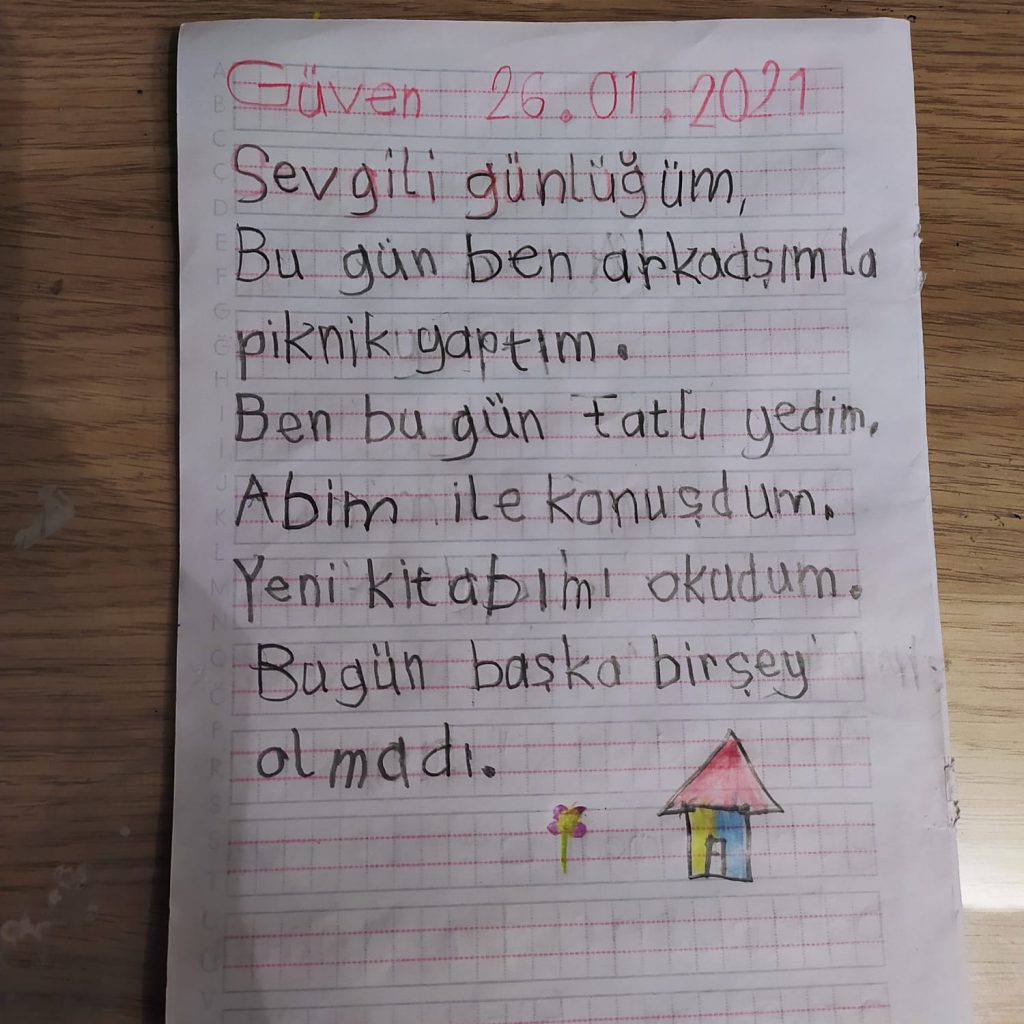 Güven 26.01.2021
Sevgili günlüğüm,
Bu gün ben arkadşımla
piknik yaptım.
Ben bu gün tatlı yedim.
Abim ile konuşdum.
Yeni kitabımı okudum.
Bugün başka birşey
olmadı.